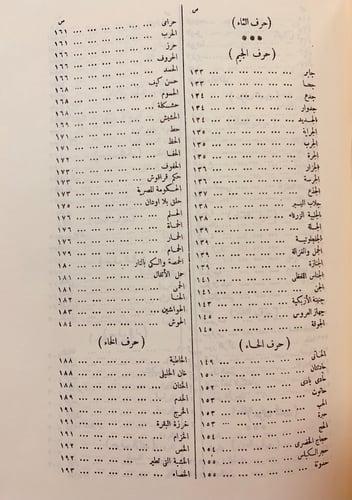 ص
( حرف الثاء )
***
( حرف الجيم )
جابر ... ١٣٣
جحا ... ١٣٣
جدع ... ١٣٤
جدوار ... ١٣٤
١٣٤
الجراية ... ١٣٥
الجرب ... ١٣٥
الجرة ... ١٣٥
الجزار ... ١٣٦
الجرسة ... ١٣٦
الجذع ... ١٣٧
جلاب اليسير ... ١٣٨
الجلبية الزرقاء ... ١٣٨
الجلة ... ١٣٩
الجلجلوتية ... ١٣٩
الجمل والغزالة ... ١٣٩
الجنازة ... ١٣٩
الجناس اللفظى ... ١٤١
الجن ... ١٤١
جنينة الأزبكية ... ١٤٣
جهاز العروس ... ١٤٥
الجوقة ... ١٤٥
( حرف الحاء )
الحاتى ... ١٤٩
حادثتان ... ١٥٠
حادى بادى ... ١٥٢
حانوت ... ١٥٣
الحب ... ١٥٣
حبرة ... ١٥٣
الحج ... ١٥٤
حجاج الخضرى ... ١٥٤
حجر السكبلس ... ١٥٥
حدوتة ... ١٥٥
ص
حرامى ... ١٦١
الحرب ... ١٦١
حرز ... ١٦٦
الحروف ... ١٦٦
الحسد ... ١٦٦
حسن كيف ... ١٦٨
الحسوم ... ١٦٨
حشكلة ... ١٦٨
الحشيش ... ١٦٨
حط ... ١٧١
الحظ ... ١٧١
الحفا ... ١٧١
الحفوف ... ١٧٢
حكم قراقوش ... ١٧٣
الحكومة المصرية ... ١٧٣
حلق بلا اودان ... ١٧٥
الحلم ... ١٧٦
الحماة ... ١٧٦
الحمار ... ١٧٧
الحمام ... ١٧٩
الحمصة والكى بالنار ... ١٨٠
حمل الأثقال ... ١٨١
الحمى ... ١٨١
الحنا ... ١٨٢
الحواشين ... ١٨٣
الحوش ... ١٨٤
( حرف الخاء )
الخاطبة ... ١٨٨
خان الخليلى ... ١٨٨
الختان ... ١٨٨
الخدم ... ١٨٩
الخرج ... ١٩١
خرزة البقرة ... ١٩١
الخزام ... ١٩١
الخص ... ١٩٢
الخشبة التى تطير ... ١٩٢
الخصاء ... ١٩٣